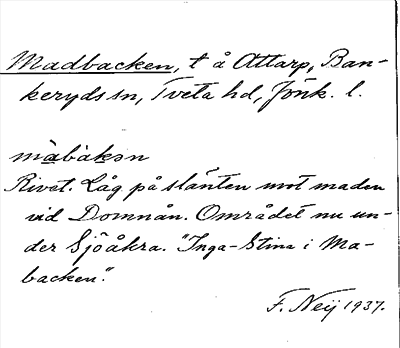 Madbacken, t å Attarp, Ban-
keryds sn, Tveta hd, Jönk. l.
mabakən
Rivet. Låg på slänten mot maden
vid Domnån. Området nu un-
der Sjöåkra. "Inga-Stina i Ma-
backen".
F. Neij 1937.